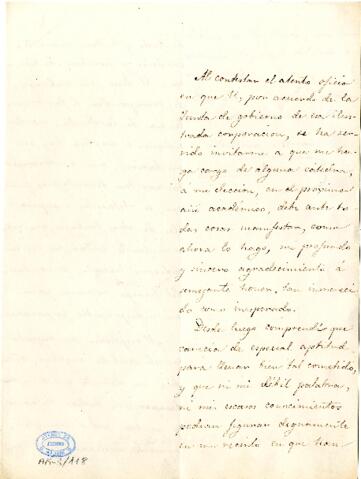 Al contestar el atento oficio
en que V., por acuerdo de la
Junta de gobierno de esa ilus-
trada corporacion, se ha ser-
vido invitarme a que me ha-
ga cargo de alguna cátedra,
a mi eleccion, en el próximo
año académico, debo ante to-
das cosas manifestar, como
ahora lo hago, mi profundo
y sincero agradecimiento á
semejante honor, tan inmereci-
do como inesperado.
Desde luego comprendí que
carecia de especial aptitud
para llenar bien tal cometido,
y que ni mi débil palabra,
ni mis escasos conocimientos
podian figurar dignamente
en un recinto en que han